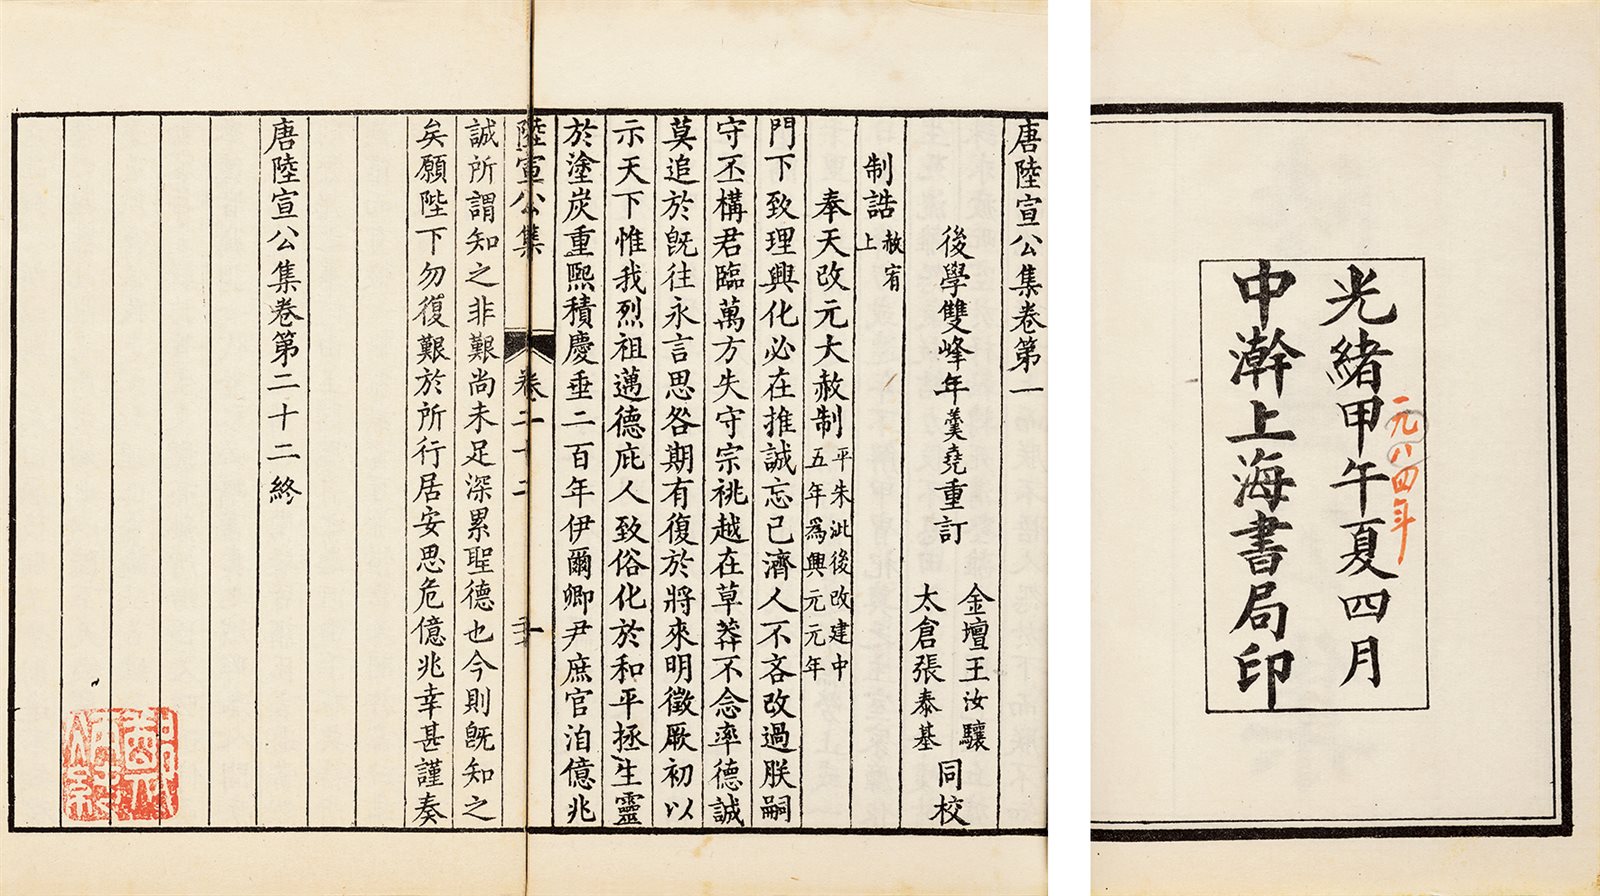 光緒甲午夏四月
中澣上海書局印
元八四年
唐陸宣公集卷第一
金壇王汝驤
後學雙峰年羹堯重訂
太倉張泰基
同校
制誥
赦宥
上
奉天改元大赦制
平朱泚後改建中
五年爲興元元年
門下致理興化必在推誠忘己濟人不吝改過朕嗣
守丕構君臨萬方失守宗祧越在草莽不念率德誠
莫追於既往永言思咎期有復於將來明徵厥初以
示天下惟我烈祖邁德庇人致俗化於和平拯生靈
於塗炭重熙積慶垂二百年伊爾卿尹庶官洎億兆
陸宣公集
卷二十二
誠所謂知之非艱尚未足深累聖德也今則既知之
矣願陛下勿復艱於所行居安思危億兆幸甚謹奏
唐陸宣公集卷第二十二終